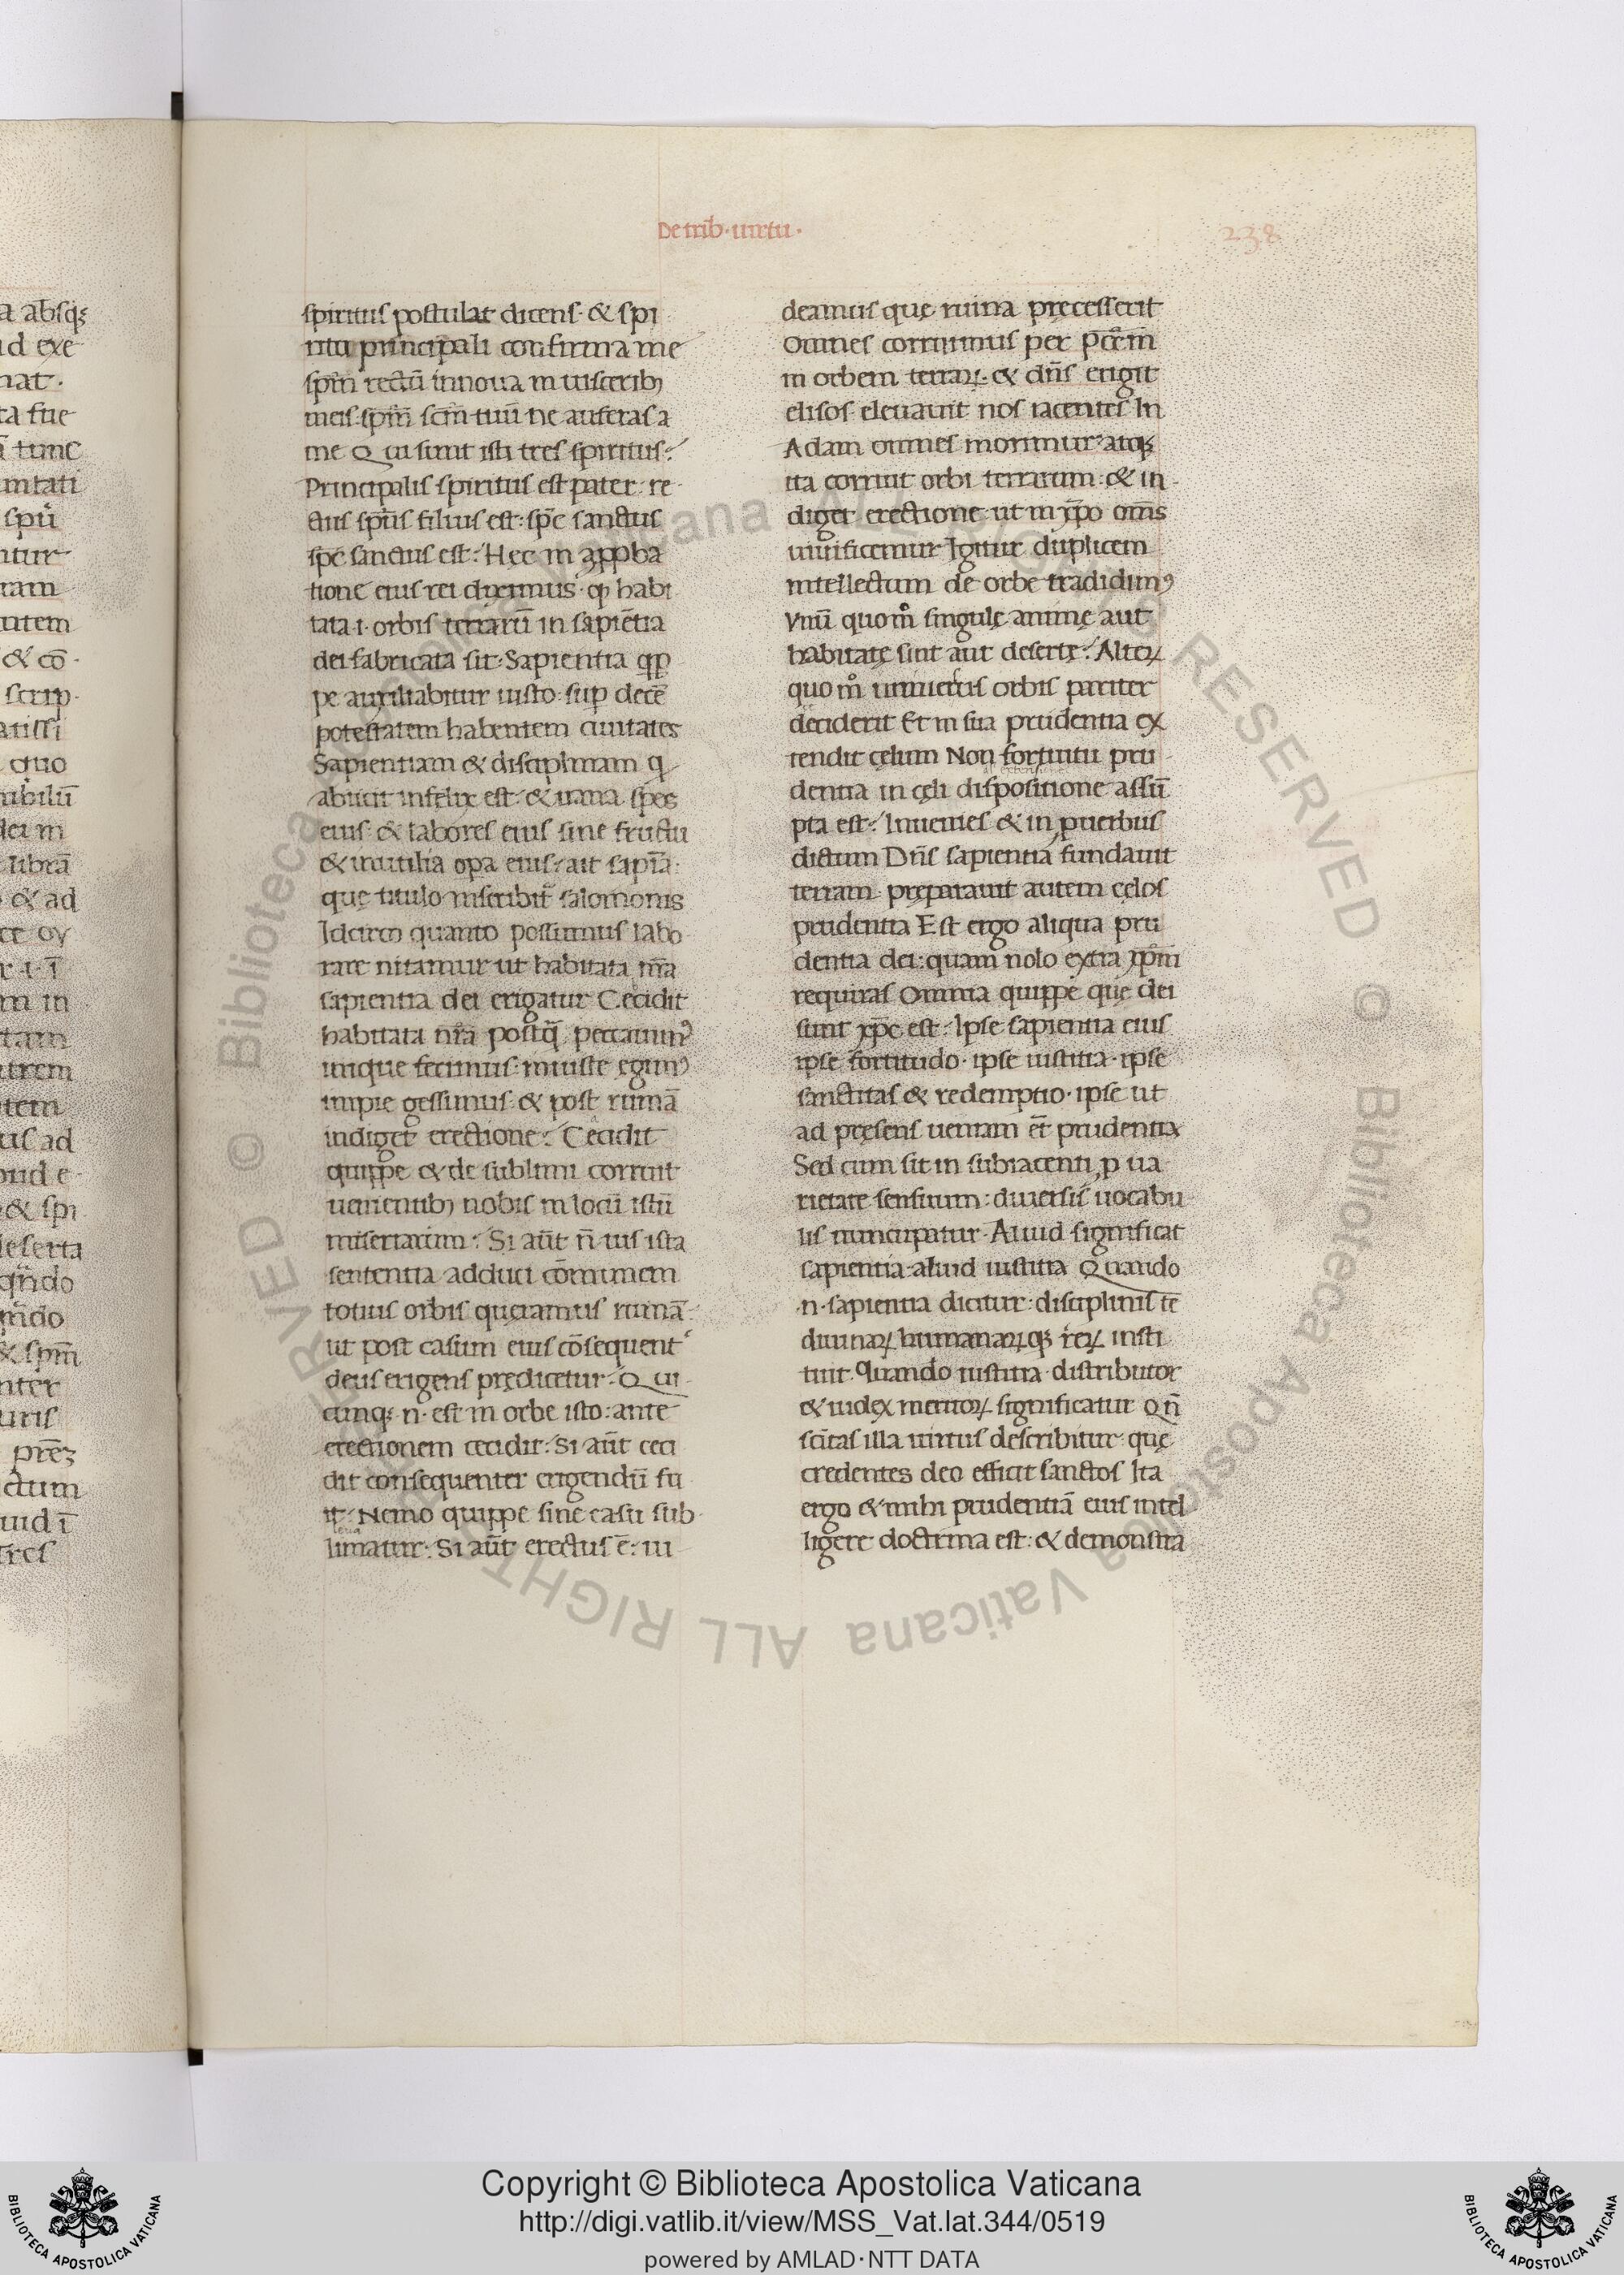 De trib · uirtu ·
238
spiritus postulat dicens · & spi
ritu principali confirma me
spm̄ rectū innoua in uisceribꝫ
meis · spm̄ scm̄ tuū ne auferas a
me Qui sunt isti tres spiritus :
Principalis spiritus est pater : re
ctus sp̄us filius est : spc̄ sanctus
spc̄ sanctus est : Hęc in apꝓba
tione eius rei diximus · ꝙ habi
tata · i · orbis terrarū in sapiētia
dei fabricata sit : Sapientia quip
pe auxiliabitur iusto · sup decē
potestatem habentem ciuitates
Sapientiam & disciplinam q
abiicit infelix est : & uana spes
eius : & labores eius sine fructu
& inutilia opa eius : ait sapīa :
quę titulo inscribit̄ salomonis
Idcirco quanto possumus labo
rare nitamur ut habitata nr̄a
sapientia dei erigatur Cecidit
habitata nr̄a postq̄ peccauimꝰ
inique fecimus : iniuste egimꝰ
impie gessimus : & post ruinā
indiget erectione : Cecidit
quippe & de sublimi corruit
uenientibꝫ nobis in locū istū
miseriarum : Si aūt n̄ uis ista
sententia adduci cōmunem
totius orbis quęramus ruinā
ut post casum eius cōsequent
deus erigens prędicetur · Qui
cunqꝫ · n · est in orbe isto : ante
erectionem cecidit : Si aūt ceci
dit consequenter erigendū fu
it : Nemo quippe sine casu sub
leua
limatur : Si aūt erectus ē : ui
deamus quę ruina pręcesserit
Omnes corruimus per pc̄c̄m
in orbem terraꝝ · & dn̄s erigit
elisos eleuauit nos iacentes In
Adam omnes morimur : atqꝫ
ita corruit orbi terrarum : & in
diget erectione · ut in xp̄o om̄s
uiuificemur Igitur duplicem
intellectum de orbe tradidimꝰ
Vnū quom̊ singulę animę aut
habitatę sint aut desertę : Alteꝝ
quom̊ uniuersus orbis pariter
deciderit Et in sua prudentia ex
tendit cęlum Non fortuitu pru
dentia in cęli dispositione assū
pta est : Inuenies & in ꝓuerbiis
dictum Dn̄s sapientia fundauit
terram · pręparauit autem cęlos
prudentia Est ergo aliqua pru
dentia dei : quam nolo extra xp̄m
requiras Omnia quippe quę dei
sunt xp̄c est : Ipse sapientia eius
ipse fortitudo · ipse iustitia · ipse
sanctitas & redemptio · ipse ut
ad pręsens ueniam et̄ prudentia
Sed cum sit in subiacenti ꝓ ua
rietate sensuum : diuersis uocabu
lis nuncupatur · Aliud significat
sapientia : aliud iustitia Quando
· n · sapientia dicitur : disciplinis te
diuinaꝝ humanaꝝqꝫ reꝝ insti
tuit · Quando iustitia · distributor
& iudex meritoꝝ significatur Qn̄
scītas illa uirtus describitur · quę
credentes deo efficit sanctos Ita
ergo & mihi prudentiā eius intel
ligere doctrina est : & demonstra
Copyright © Biblioteca Apostolica Vaticana
http://digi.vatlib.it/view/MSS_Vat.lat.344/0519
powered by AMLAD · NTT DATA